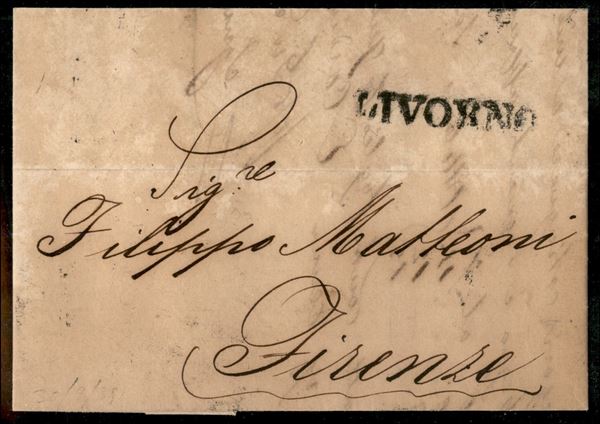 LIVORNO
Sig.re
Filippo Matteoni
Firenze